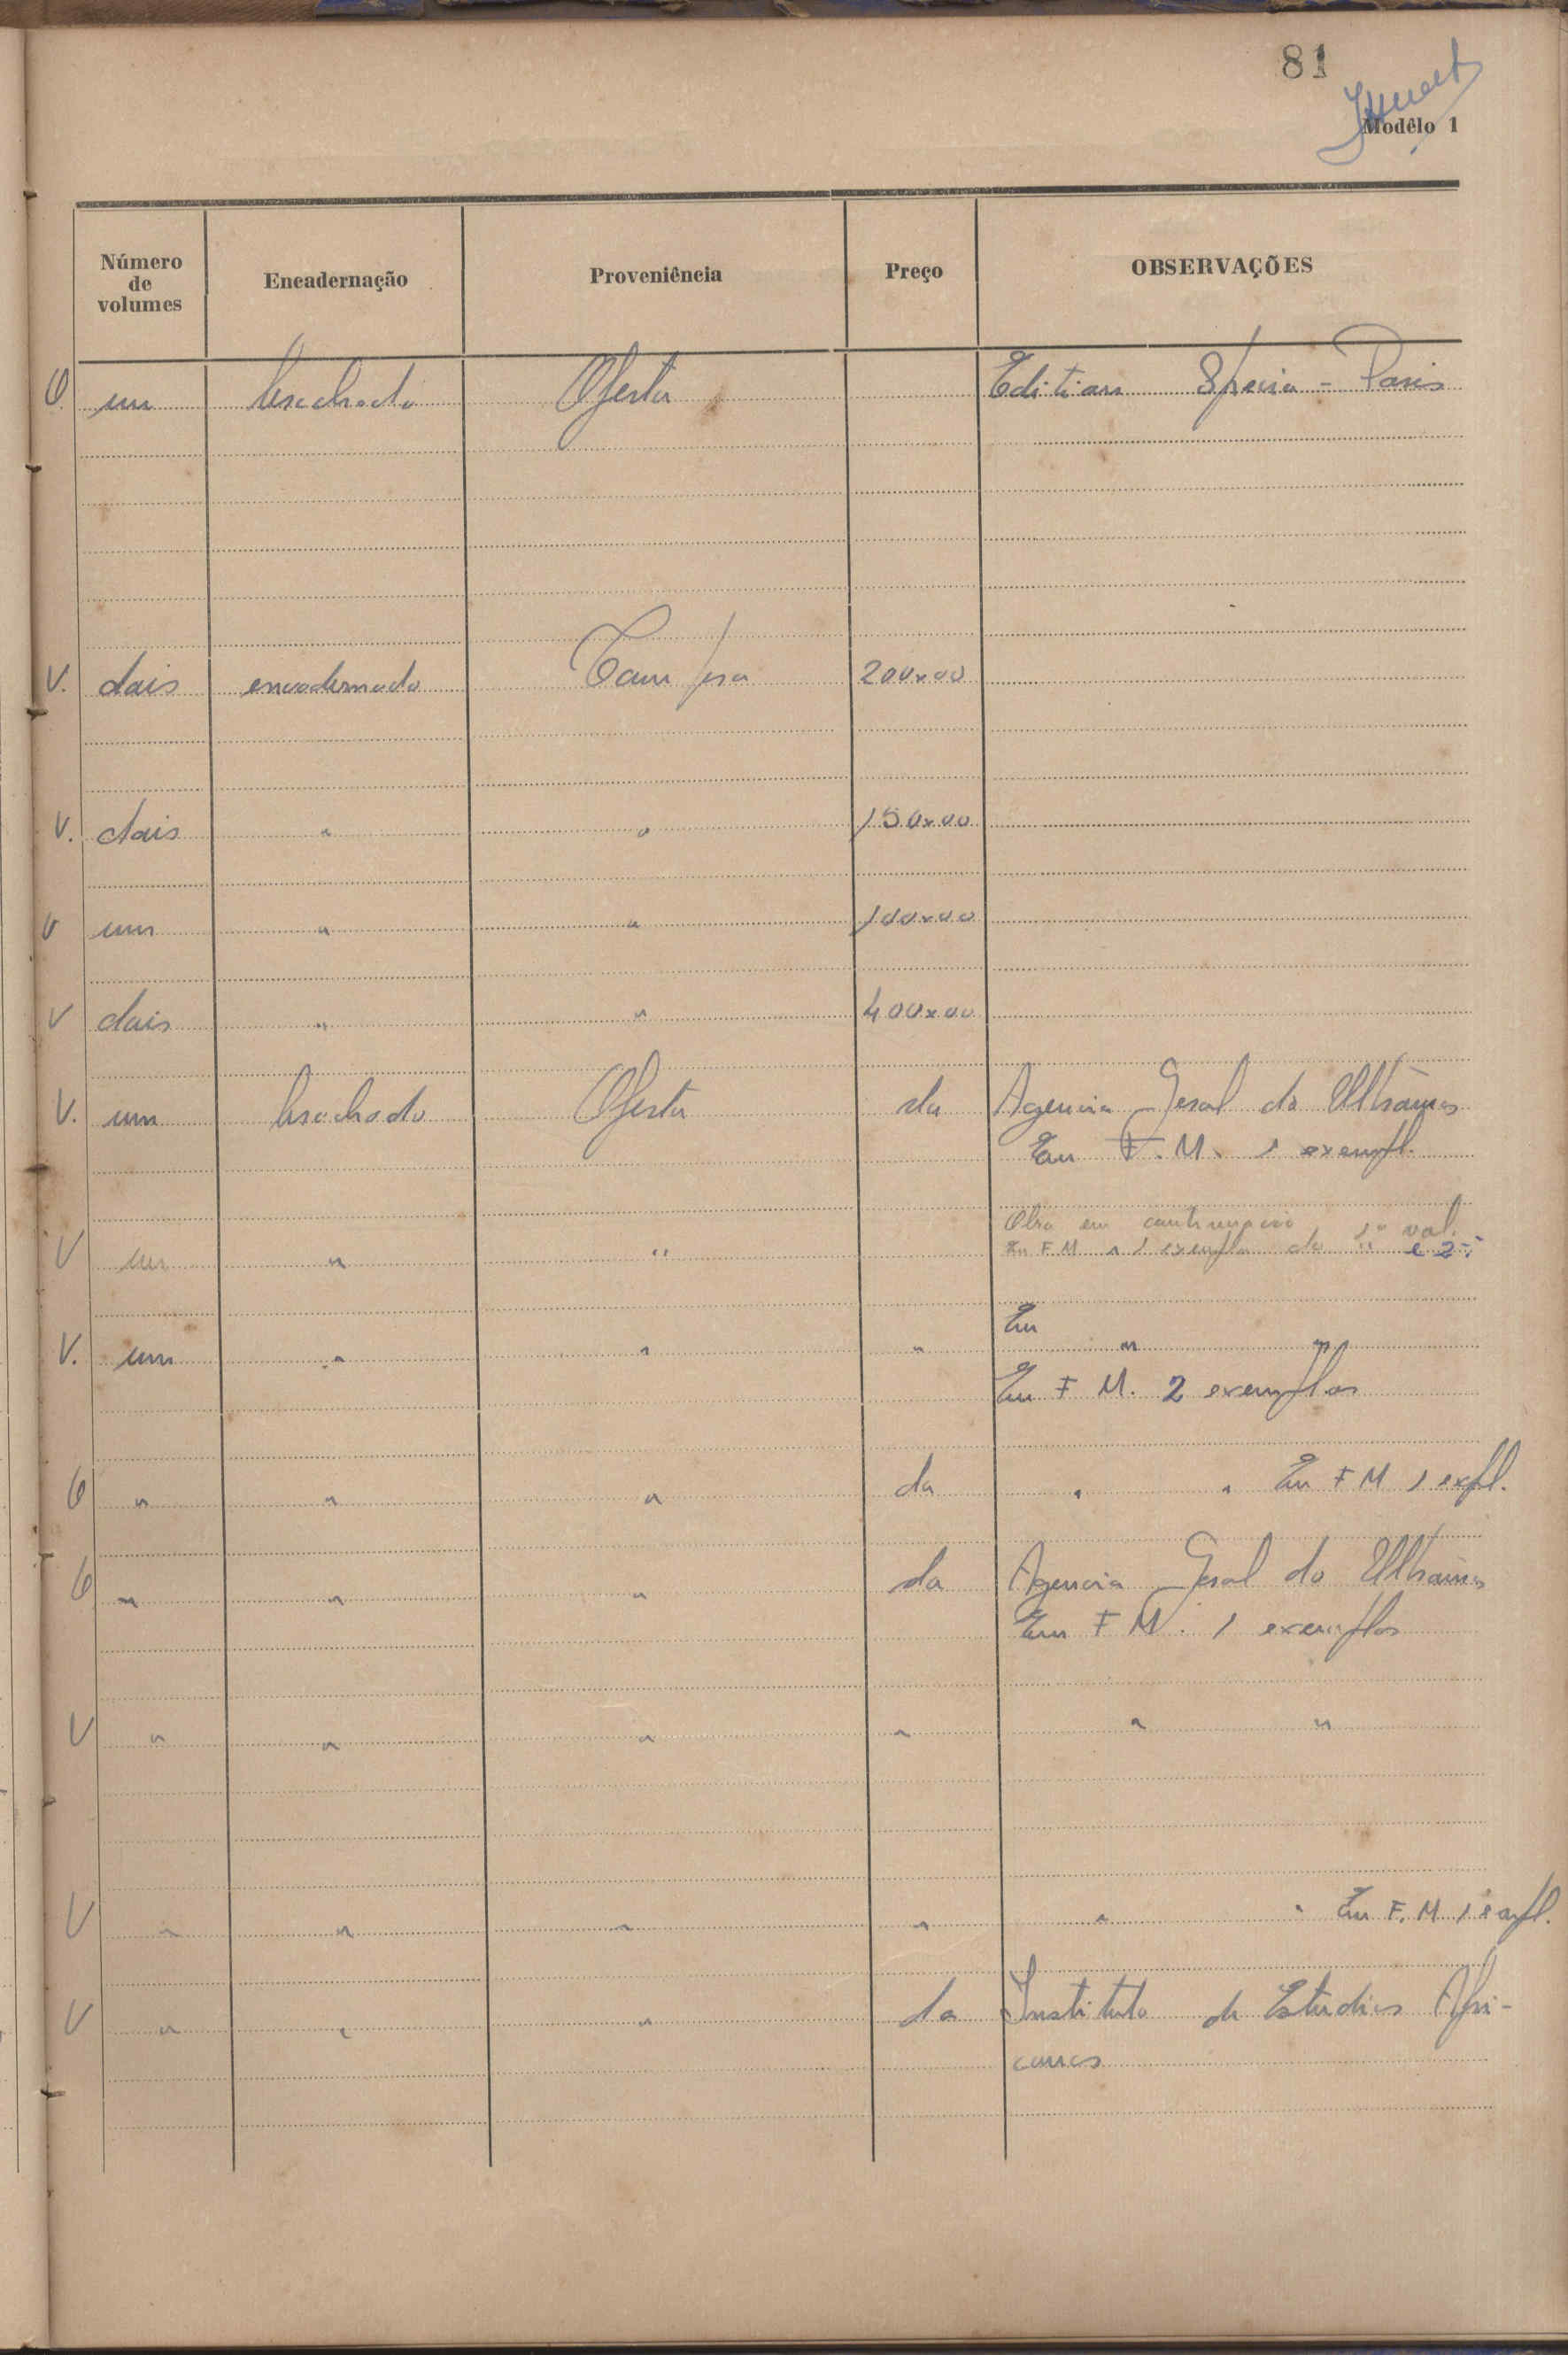 81
Modêlo 1
Número de volumes Encadernação Proveniência Preço OBSERVAÇÕES
um brochado Oferta Edition Specia - Paris
V. dois encadernado Compra 200x00
V. dois " " 150x00
V um " " 100x00
V dois " " 400x00
V. um brochado Oferta da Agencia Geral do Ultramar
Em F. M. 1 exempl.
Obra em continuação 1º vol.
V um " " Em F M 1 exemplar do " e 2º
Em
V. um " " " " "
Em F M. 2 exemplar
" " " da " " Em F M 1 expl.
" " " da Agencia Geral do Ultramar
Em F M. 1 exemplar
V " " " " " "
V " " " " " " Em F. M. 1 expl.
V " " " do Instituto de Estudios Afri-
canos